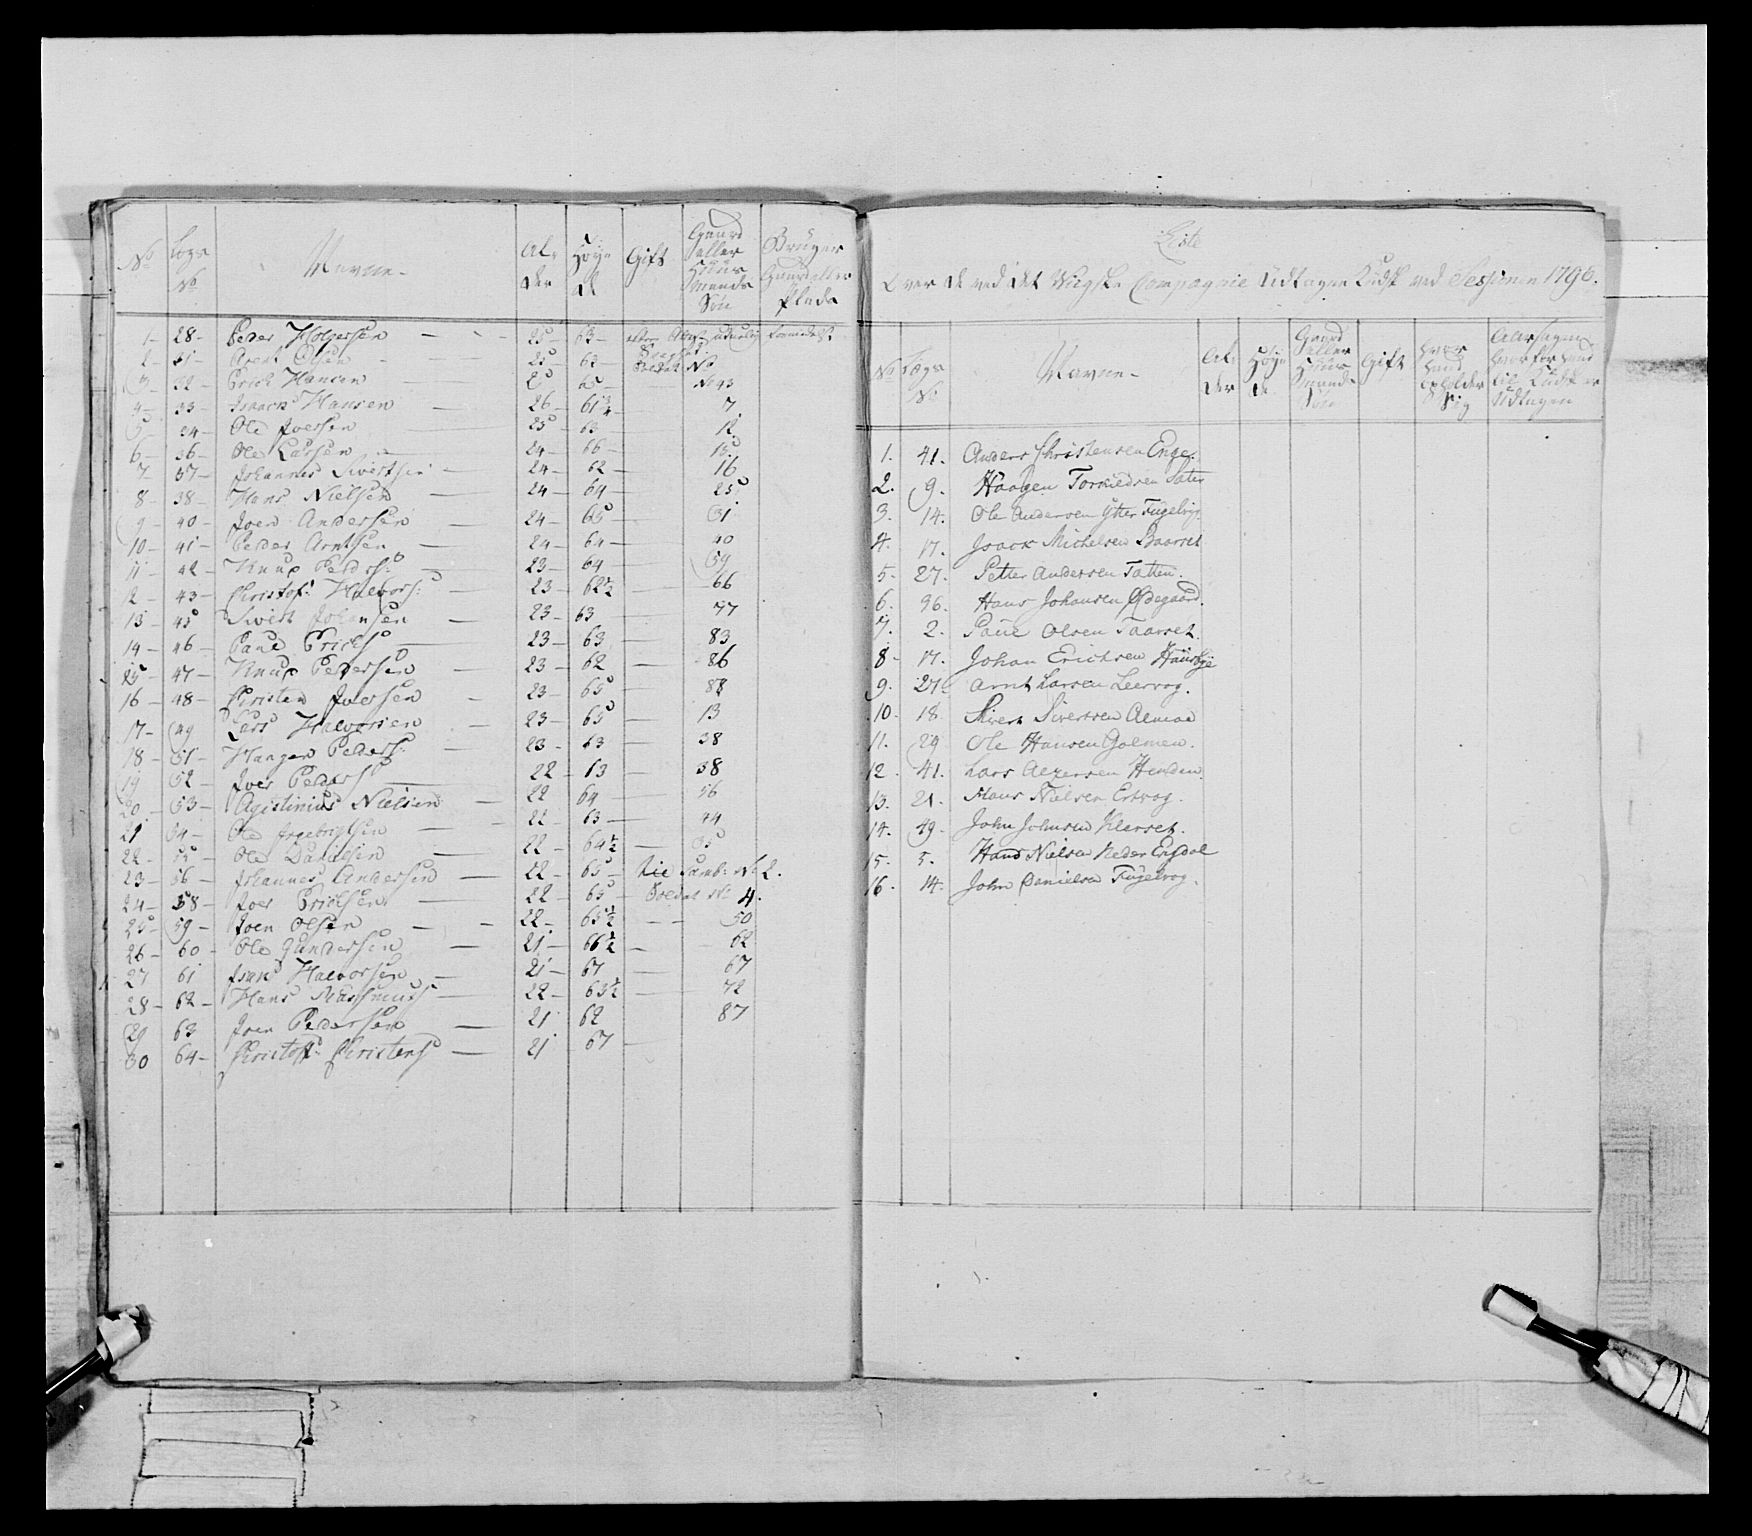 No Lægs No Navne Al-der Høyde Gift Gaard eller Huus mands Søn Bruger Gaard eller Plads
1 28 Peder Holgersen 25 63
2 31 Arent Olsen 25 62 Soldat No
3 32 Erich Hansen 65 No 43
4 33 Isaach Hansen 26 61 3/4 7
5 34 Ole Joersen 25 63 12
6 36 Ole Larsen 24 66 15
7 37 Johannes Sivertsen 24 62 16
8 38 Hans Nielsen 24 64 25
9 40 Joen Andersen 24 65 31
10 41 Peder Arntsen 24 64 40
11 42 Knup Peders: 23 64 59
12 43 Christof: Halvors: 23 62 1/2 66
13 45 Sivert Johansen 23 63 77
14 46 Paul Erichs 23 63 83
15 47 Knup Pedersen 23 62 86
16 48 Christen Joersen 23 65 88
17 49 Lars Halvorsen 23 65 13
18 51 Haagen Peders: 23 63 38
19 52 Joer Peders 22 63 38
20 53 Agustinius Nielsen 22 64 56
21 54 Ole Ingebrigtsen 22 63 44
22 55 Ole Danielsen 22 64 1/2 35
23 56 Johannes Andersen 22 65 Tie Tamb: No 2.
24 58 Joer Erichsen 22 65 Soldat No 4.
25 59 Joen Olsen 22 65 1/2 50
26 60 Ole Gundersen 21 66 1/2 62
27 61 Isak Halvorsen 21 67 67
28 62 Hans Rasmus 22 63 1/2 72
29 63 Joen Pedersen 21 62 87
30 64 Christoff: Christens 21 67
Liste
Over de ved det Compagnie Udtagne Rudsk ved Sessionen 1796.
No Lægs No Navne Al-der Høyde Gaard eller Huus mands Søn Gift hvor hand opholder Sig Aarsagen hvorfor hand til Rudsk er Udtagen
1. 41. Anders Christensen Enge.
2. 9. Haagen Torkildsen Sæter
3. 14. Ole Andersen Ytter Fugelvog
4. 17. Isack Michelsen Baarset
5. 27. Petter Andersen Tatten.
6. 36. Hans Johansen Ødegaard.
7. 2. Paul Olsen Taarset.
8 17. Johan Erichsen Huusbye
9. 27. Arnt Larsen Leervog.
10. 18. Sivert Sivertsen Almoe
11. 29 Ole Hansen Golmen.
12. 41. Lars Hendem
13. 21. Hans Nielsen Ertvog.
14. 49. John Johnsen Klevset.
15. 5. Hans Nielsen Neder Engdal
16. 14. John Danielsen Fugelvog.